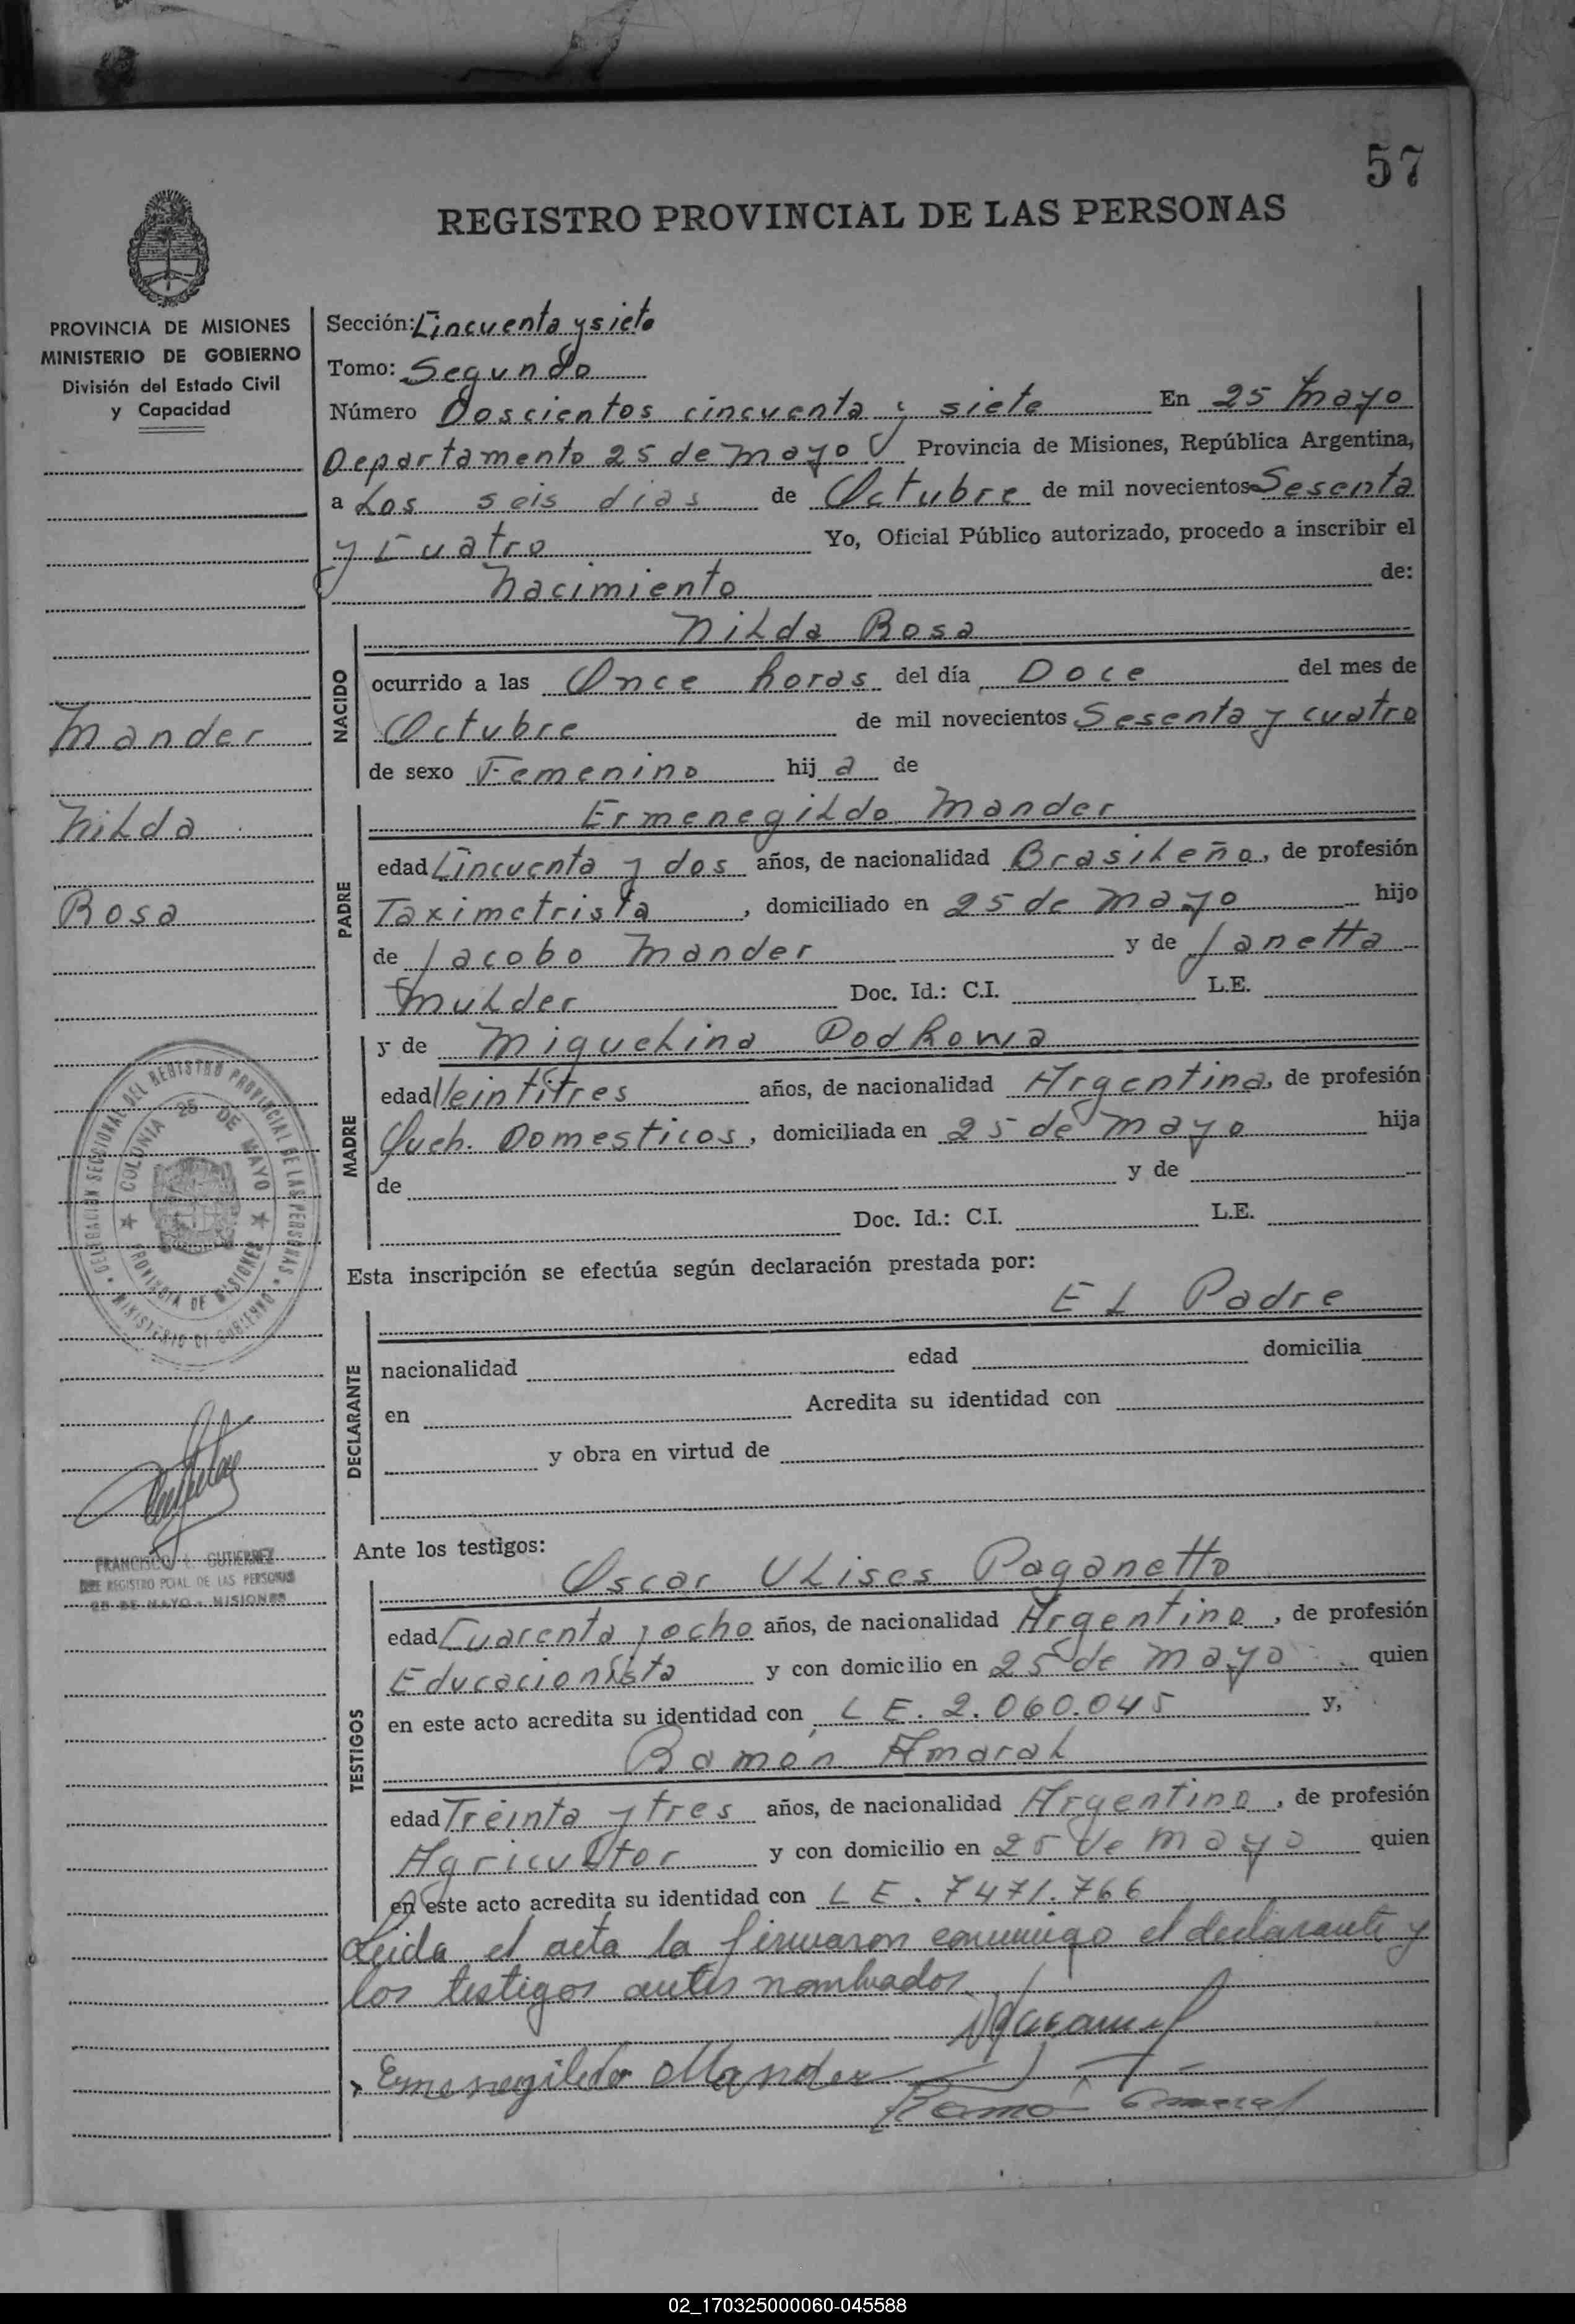 57
REGISTRO PROVINCIAL DE LAS PERSONAS
PROVINCIA DE MISIONES
MINISTERIO DE GOBIERNO
División del Estado Civil
y Capacidad
Mander
Nilda
Rosa
DELEGACION SECCIONAL DEL REGISTRO PROVINCIAL DE LAS PERSONAS
COLONIA 25 DE MAYO
PROVINCIA DE MISIONES
MINISTERIO DE GOBIERNO
FRANCISCO L. GUTIERREZ
REGISTRO PCIAL DE LAS PERSONAS
25 DE MAYO - MISIONES
Sección: Cincuenta y siete
Tomo: Segundo
Número Doscientos cincuenta y siete En 25 Mayo
Departamento 25 de Mayo Provincia de Misiones, República Argentina,
a Los seis dias de Octubre de mil novecientos Sesenta
y Cuatro Yo, Oficial Público autorizado, procedo a inscribir el
Nacimiento de:
NACIDO
Nilda Rosa
ocurrido a las Once horas del día Doce del mes de
Octubre de mil novecientos Sesenta y cuatro
de sexo Femenino hij a de
PADRE
Ermenegildo Mander
edad Cincuenta y dos años, de nacionalidad Brasileño, de profesión
Taximetrista, domiciliado en 25 de Mayo hijo
de Jacobo Mander y de Janetta
Mulder Doc. Id.: C.I. L.E.
MADRE
y de Miguelina Podkowa
edad Veintitres años, de nacionalidad Argentina, de profesión
Queh. Domesticos, domiciliada en 25 de Mayo hija
de y de
Doc. Id.: C.I. L.E.
Esta inscripción se efectúa según declaración prestada por:
DECLARANTE
El Padre
nacionalidad edad domicilia
en Acredita su identidad con
y obra en virtud de
Ante los testigos:
TESTIGOS
Oscar Ulises Paganetto
edad Cuarenta y ocho años, de nacionalidad Argentino, de profesión
Educacionista y con domicilio en 25 de Mayo quien
en este acto acredita su identidad con L E. 2.060.045 y,
Ramón Amaral
edad Treinta y tres años, de nacionalidad Argentino, de profesión
Agricultor y con domicilio en 25 de Mayo quien
en este acto acredita su identidad con L E. 7471.766
Leida el acta la firmaron conmigo el declarante y
los testigos antes nombrados.
Ermenegildo Mander
Ramó Amaral
02_170325000060-045588